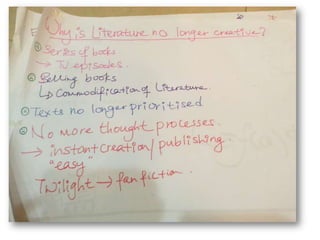 Why is Literature no longer creative?
Series of books
→ TV episodes.
Selling books
↳ Commodification of Literature.
Texts no longer prioritised
No more thought processes.
→ instant creation/publishing.
"easy"
Twilight → fanfiction.